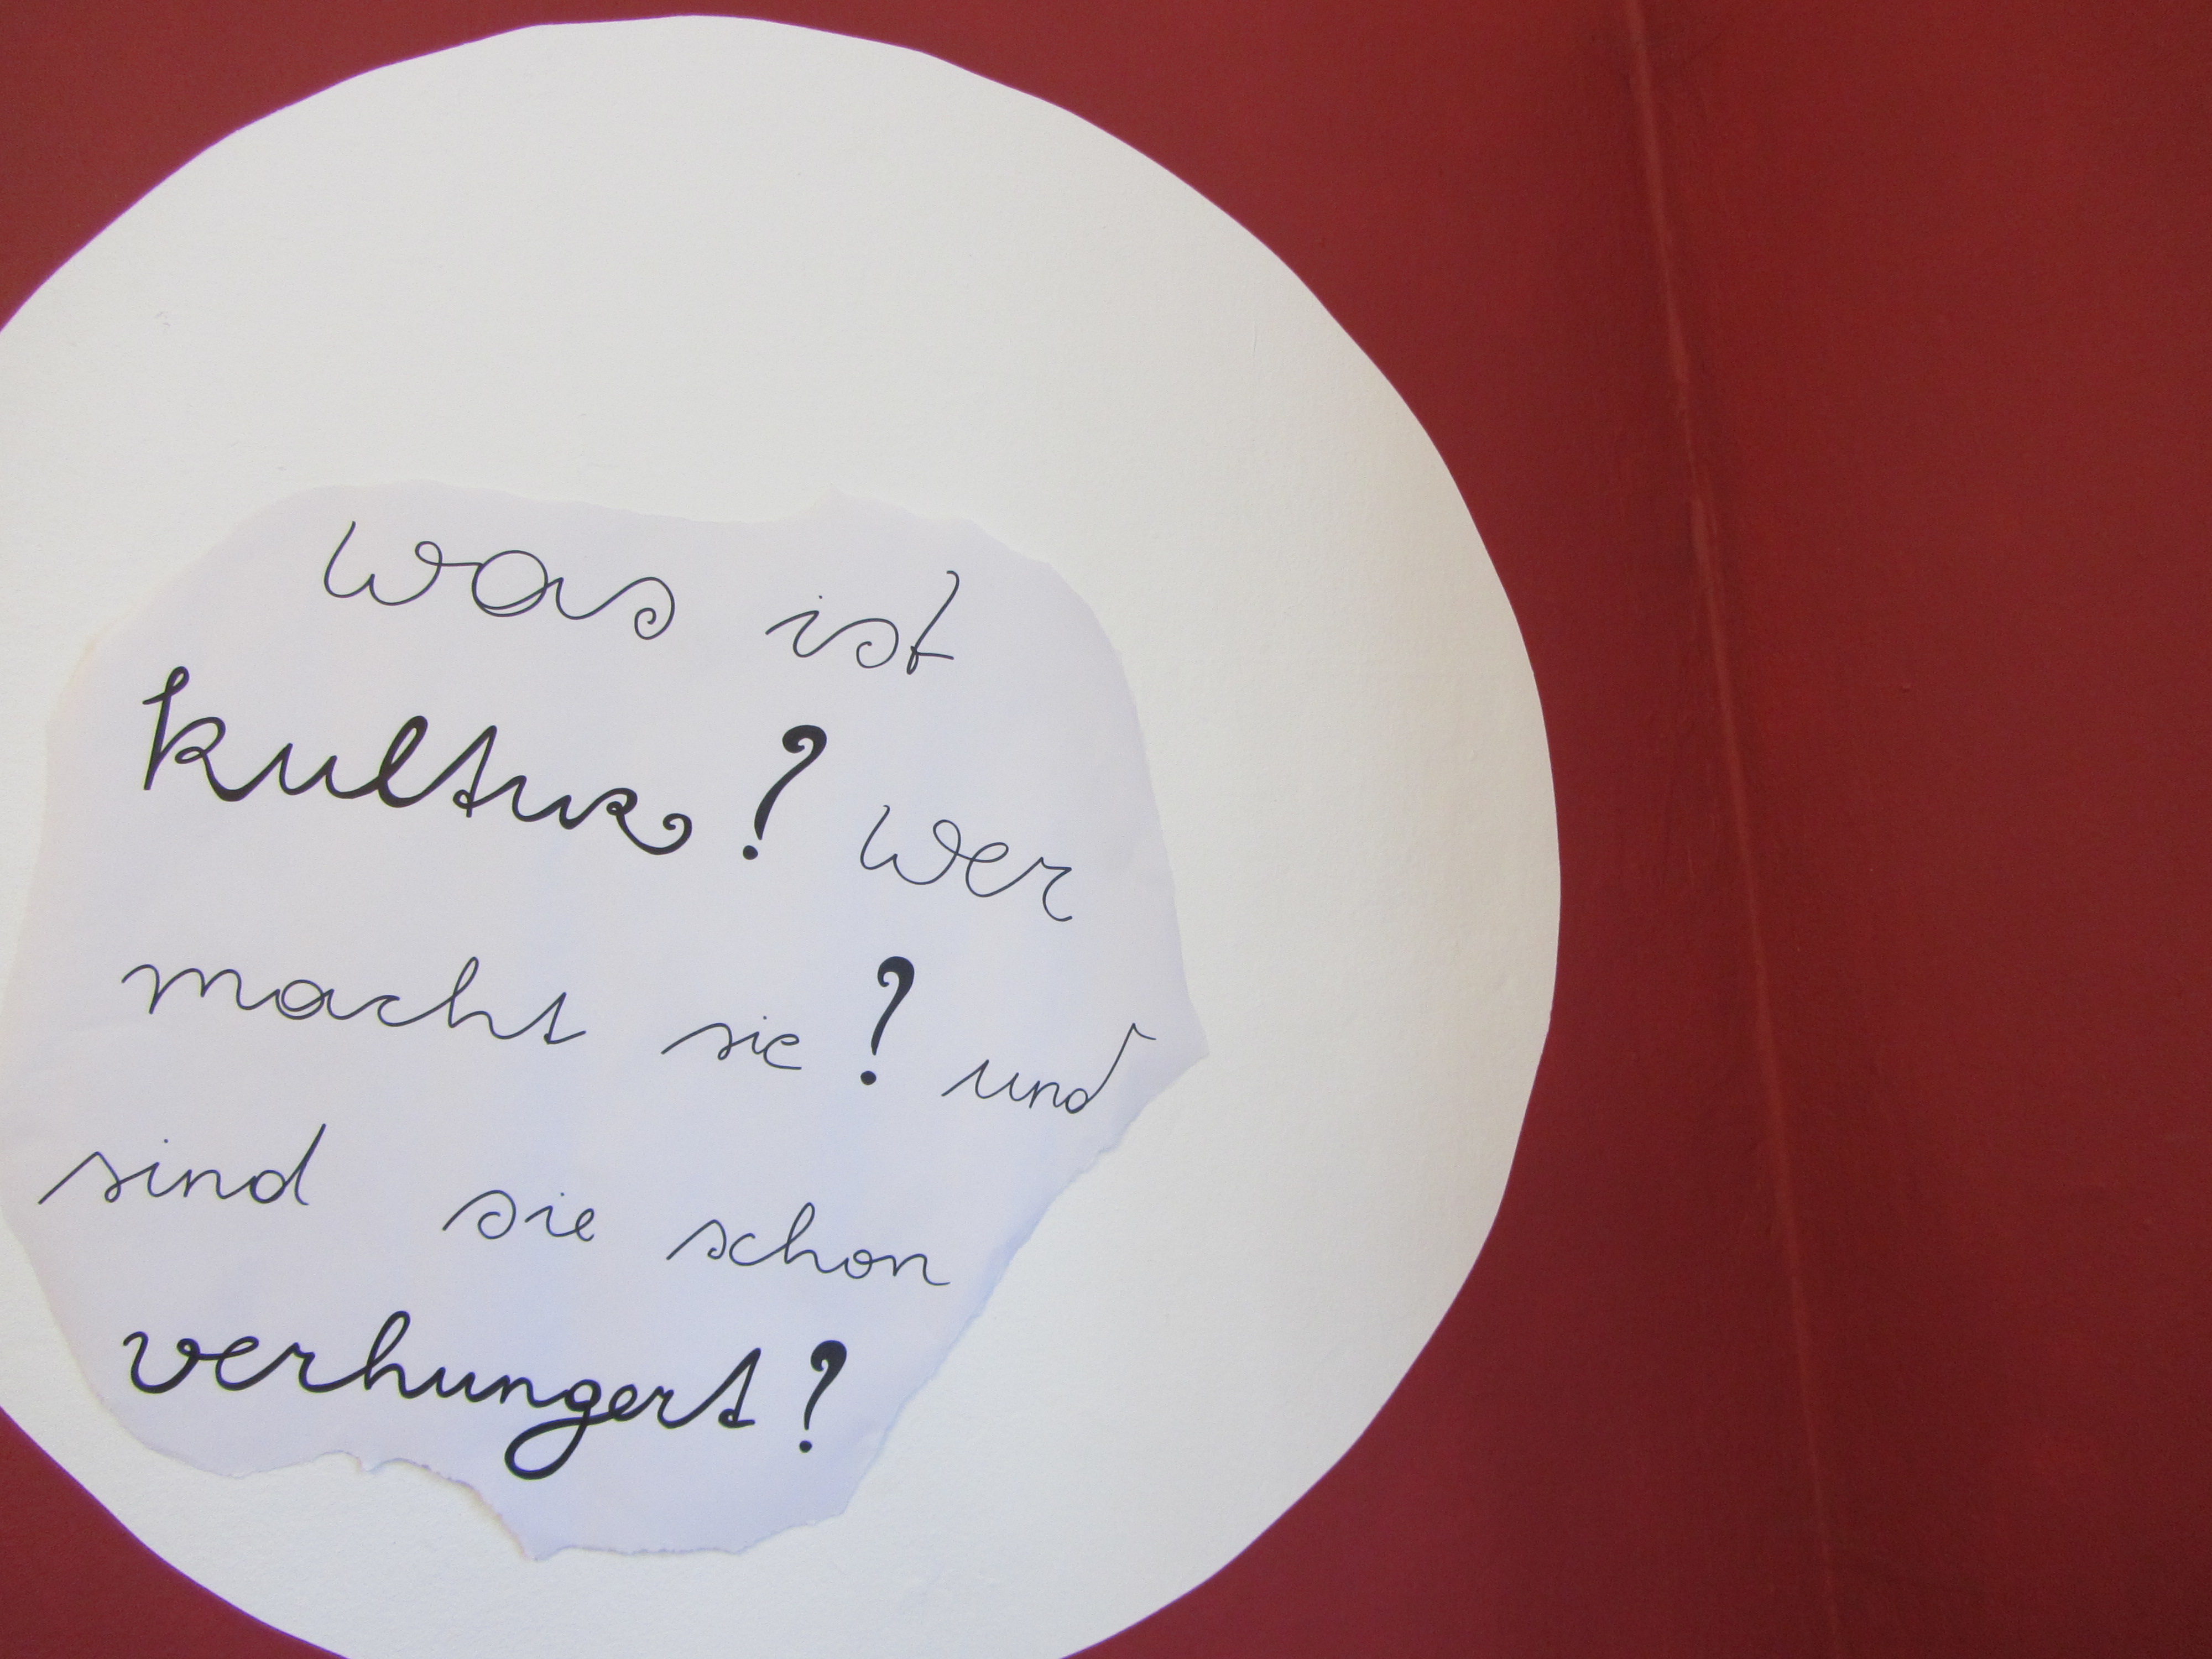 was ist
kultur? wer
macht sie? und
sind sie schon
verhungert?